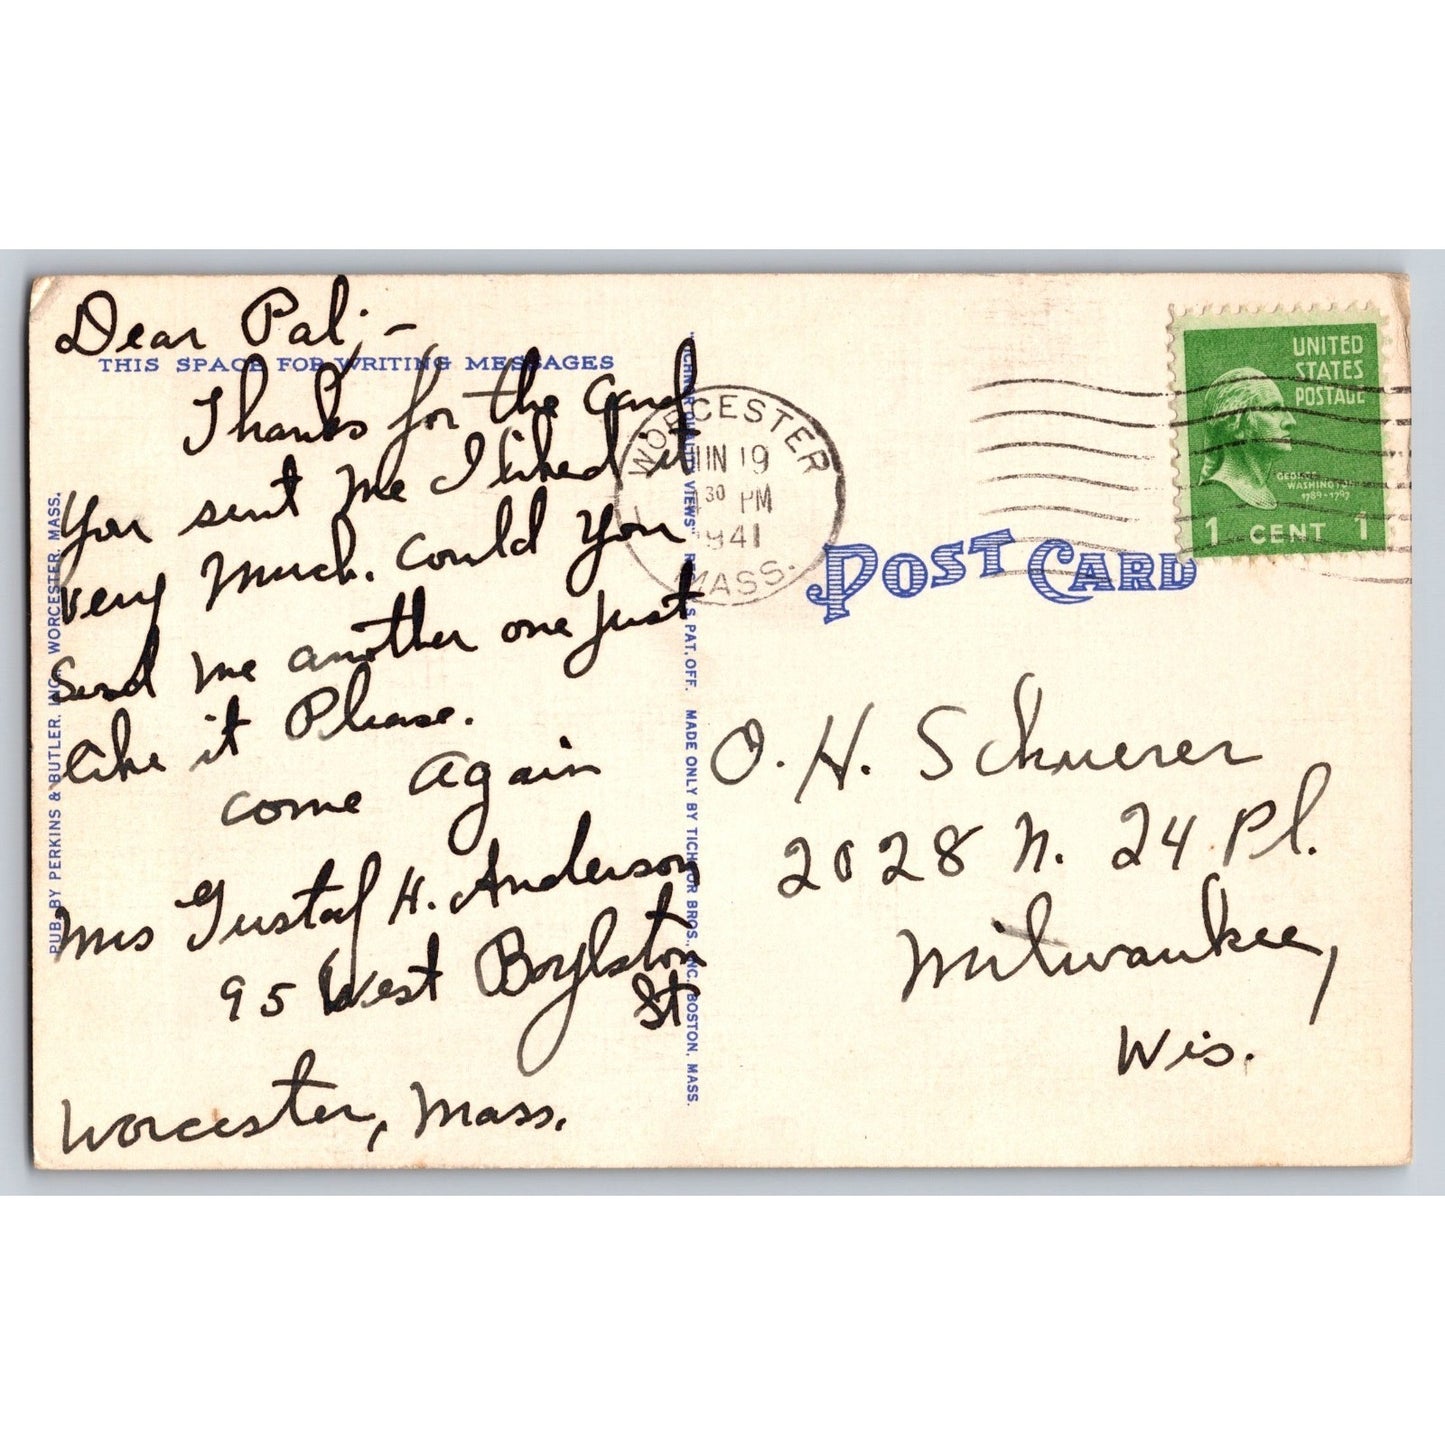 Dear Pal;-
THIS SPACE FOR WRITING MESSAGES
Thanks for the card
you sent me I liked it
very much. Could you
Send me another one just
like it Please.
come Again
Mrs Gustaf H. Anderson
95 West Boylston
St
Worcester, Mass.
PUB. BY PERKINS & BUTLER, INC., WORCESTER, MASS.
"TICHNOR QUALITY VIEWS" REG. U.S. PAT. OFF. MADE ONLY BY TICHNOR BROS., INC., BOSTON, MASS.
WORCESTER
JUN 19
30 PM
1941
MASS.
UNITED
STATES
POSTAGE
GEORGE
WASHINGTON
1789-1797
1 CENT 1
POST CARD
O. H. Schuerer
2028 N. 24 Pl.
Milwaukee,
Wis.